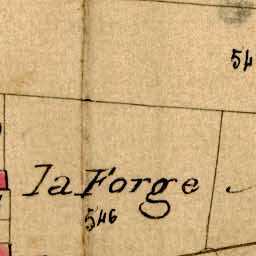 54
la Forge
546